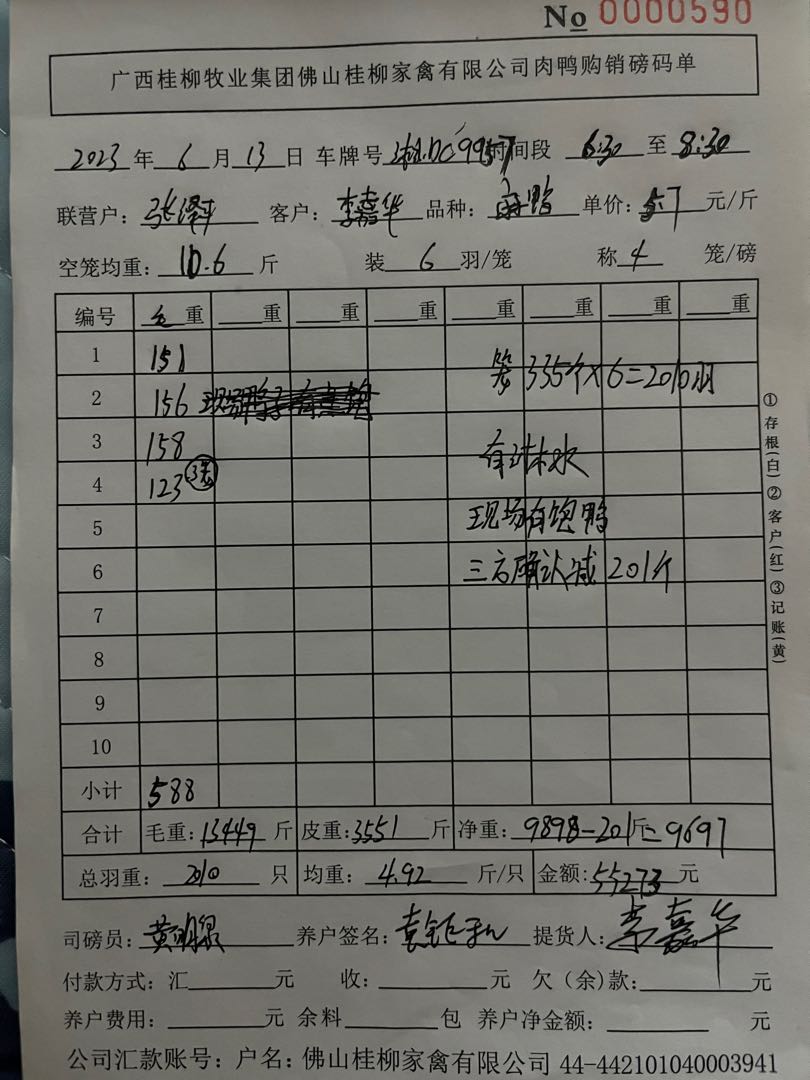 No 0000590
广西桂柳牧业集团佛山桂柳家禽有限公司肉鸭购销磅码单
2023 年 6 月 13 日 车牌号 湘DC9957 时间段 6:30 至 8:30
联营户: 张泽平 客户: 李嘉华 品种: 麻鸭 单价: 5.7 元/斤
空笼均重: 10.6 斤 装 6 羽/笼 称 4 笼/磅
编号 毛重 重 重 重 重 重 重 重
1 151 笼 335个×6=2010羽
2 156
3 158 有淋水
4 123 3笼
5 现场有饱鸭
6 三方确认减 201斤
7
8
9
10
小计 588
合计 毛重: 13449 斤 皮重: 3551 斤 净重: 9898-201斤=9697
总羽重: 2010 只 均重: 4.92 斤/只 金额: 55273 元
司磅员: 黄明 养户签名: 提货人: 李嘉华
付款方式: 汇 元 收: 元 欠(余)款: 元
养户费用: 元 余料 包 养户净金额: 元
公司汇款账号: 户名: 佛山桂柳家禽有限公司 44-442101040003941
①存根(白)②客户(红)③记账(黄)